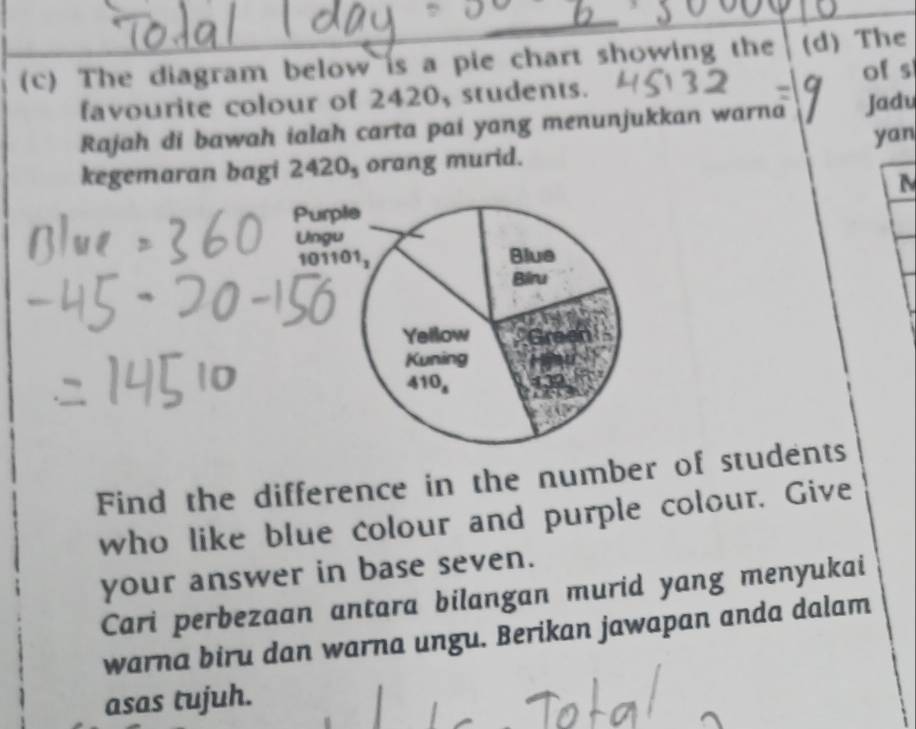 Total 1 day =
(c) The diagram below is a pie chart showing the
favourite colour of 2420₅ students. 45132 = 9
Rajah di bawah ialah carta pai yang menunjukkan warna
kegemaran bagi 2420₅ orang murid.
(d) The
of s
Jadu
yan
M
Blue = 360
-45 - 20 - 150
= 14510
Purple
Ungu
101101₂
Blue
Biru
Yellow
Kuning
410₆
Green
Hijau
Find the difference in the number of students
who like blue colour and purple colour. Give
your answer in base seven.
Cari perbezaan antara bilangan murid yang menyukai
warna biru dan warna ungu. Berikan jawapan anda dalam
asas tujuh.
Total